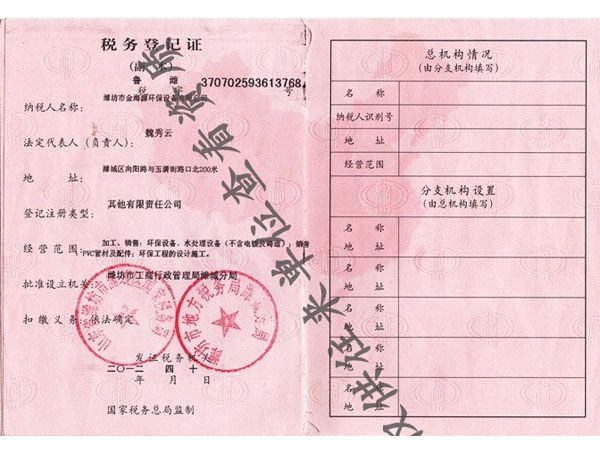 税务登记证
(副 本)
鲁 潍
税 字 370702593613768 号
纳税人名称：潍坊市金海源环保设备有限公司
法定代表人（负责人）：魏秀云
地 址：潍城区向阳路与玉清街路口北200米
登记注册类型：其他有限责任公司
经营范围：加工、销售：环保设备、水处理设备（不含电镀及铸造）；销售：
PVC管材及配件；环保工程的设计施工。
批准设立机关：潍坊市工商行政管理局潍城分局
扣缴义务：依法确定
发证税务机关
二〇一二 四 十
年 月 日
国家税务总局监制
总机构情况
(由分支机构填写)
名 称
纳税人识别号
地 址
经营范围
分支机构设置
(由总机构填写)
名 称
地 址
名 称
地 址
名 称
地 址
名 称
地 址
名 称
地 址
潍坊市地方税务局潍城分局
仅供往来单位查看资质